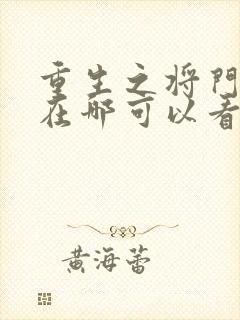 重生之将門
在哪可以看
黄海蕾